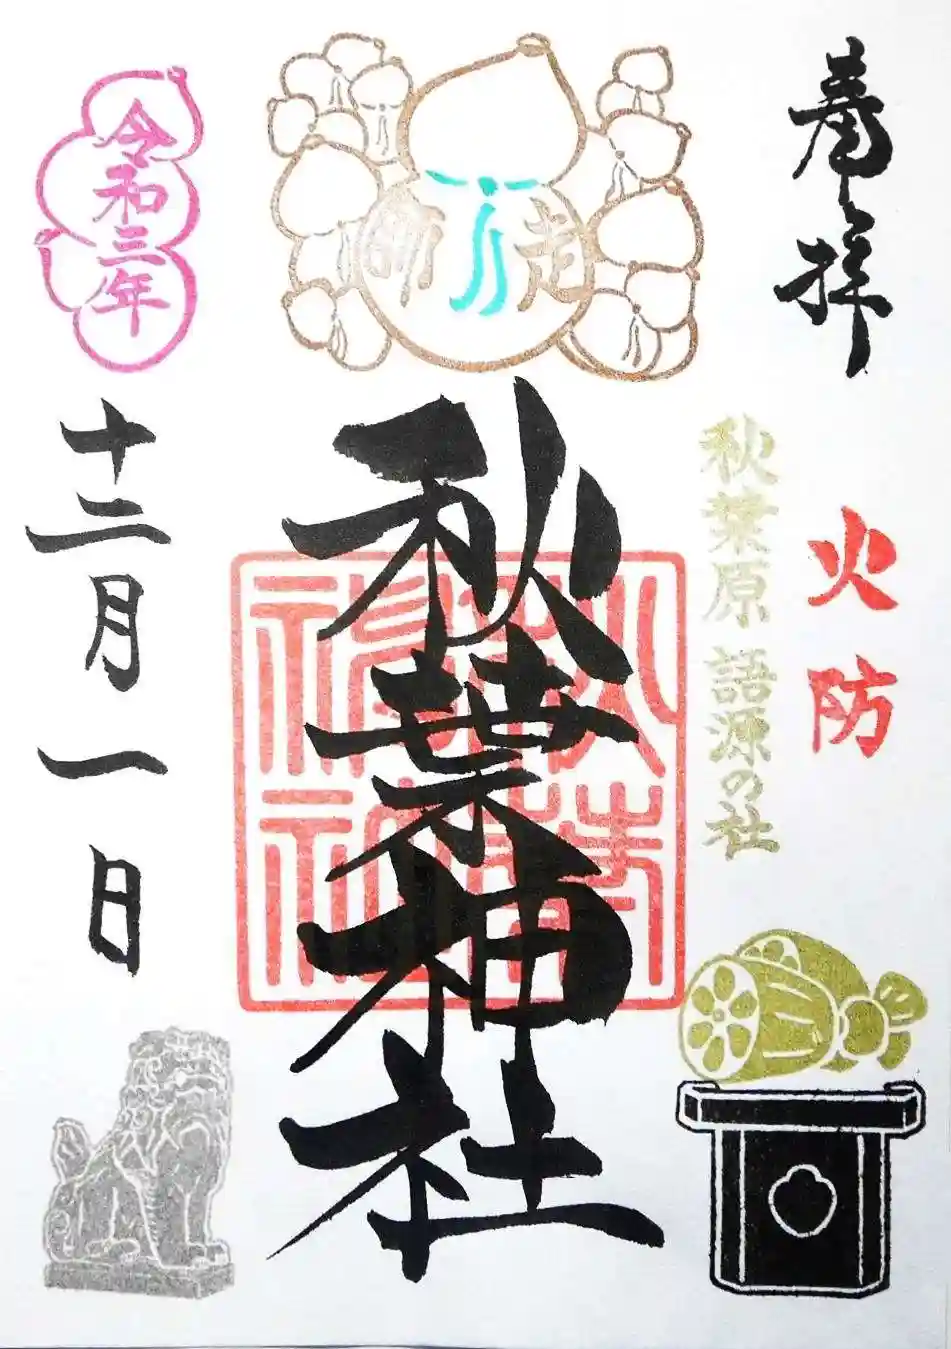 奉拝
火防
秋葉原 語源の社
師走
秋葉神社
秋葉
神社
令和三年
十二月一日